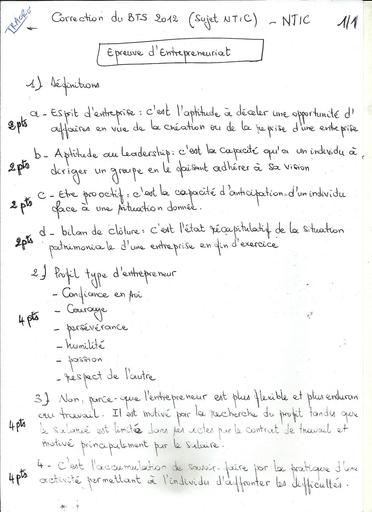 TRACEC
Correction du BTS 2012 (Sujet NTIC) - NTIC 1/1
Epreuve d'Entrepreneuriat
1) Définitions
2pts a - Esprit d'entreprise : c'est l'aptitude à déceler une opportunité d'
affaires en vue de la création ou de la reprise d'une entreprise
2pts b - Aptitude au leadership : c'est la capacité qu'a un individu à
diriger un groupe en le faisant adhérer à sa vision
2pts c - Etre proactif : c'est la capacité d'anticipation d'un individu
face à une situation donnée.
2pts d - bilan de clôture : c'est l'état récapitulatif de la situation
patrimoniale d'une entreprise en fin d'exercice
2) Profil type d'entrepreneur
- Confiance en soi
- Courage
4pts - persévérance
- humilité
- passion
- respect de l'autre
3) Non, parce-que l'entrepreneur est plus flexible et plus enduran
au travail. Il est motivé par la recherche du profit tandis que
4pts le salarié est limité dans ses actes par le contrat de travail et
motivé principalement par le salaire.
4 - C'est l'accumulation de savoir-faire par la pratique d'une
4pts activité permettant à l'individu d'affronter les difficultés.